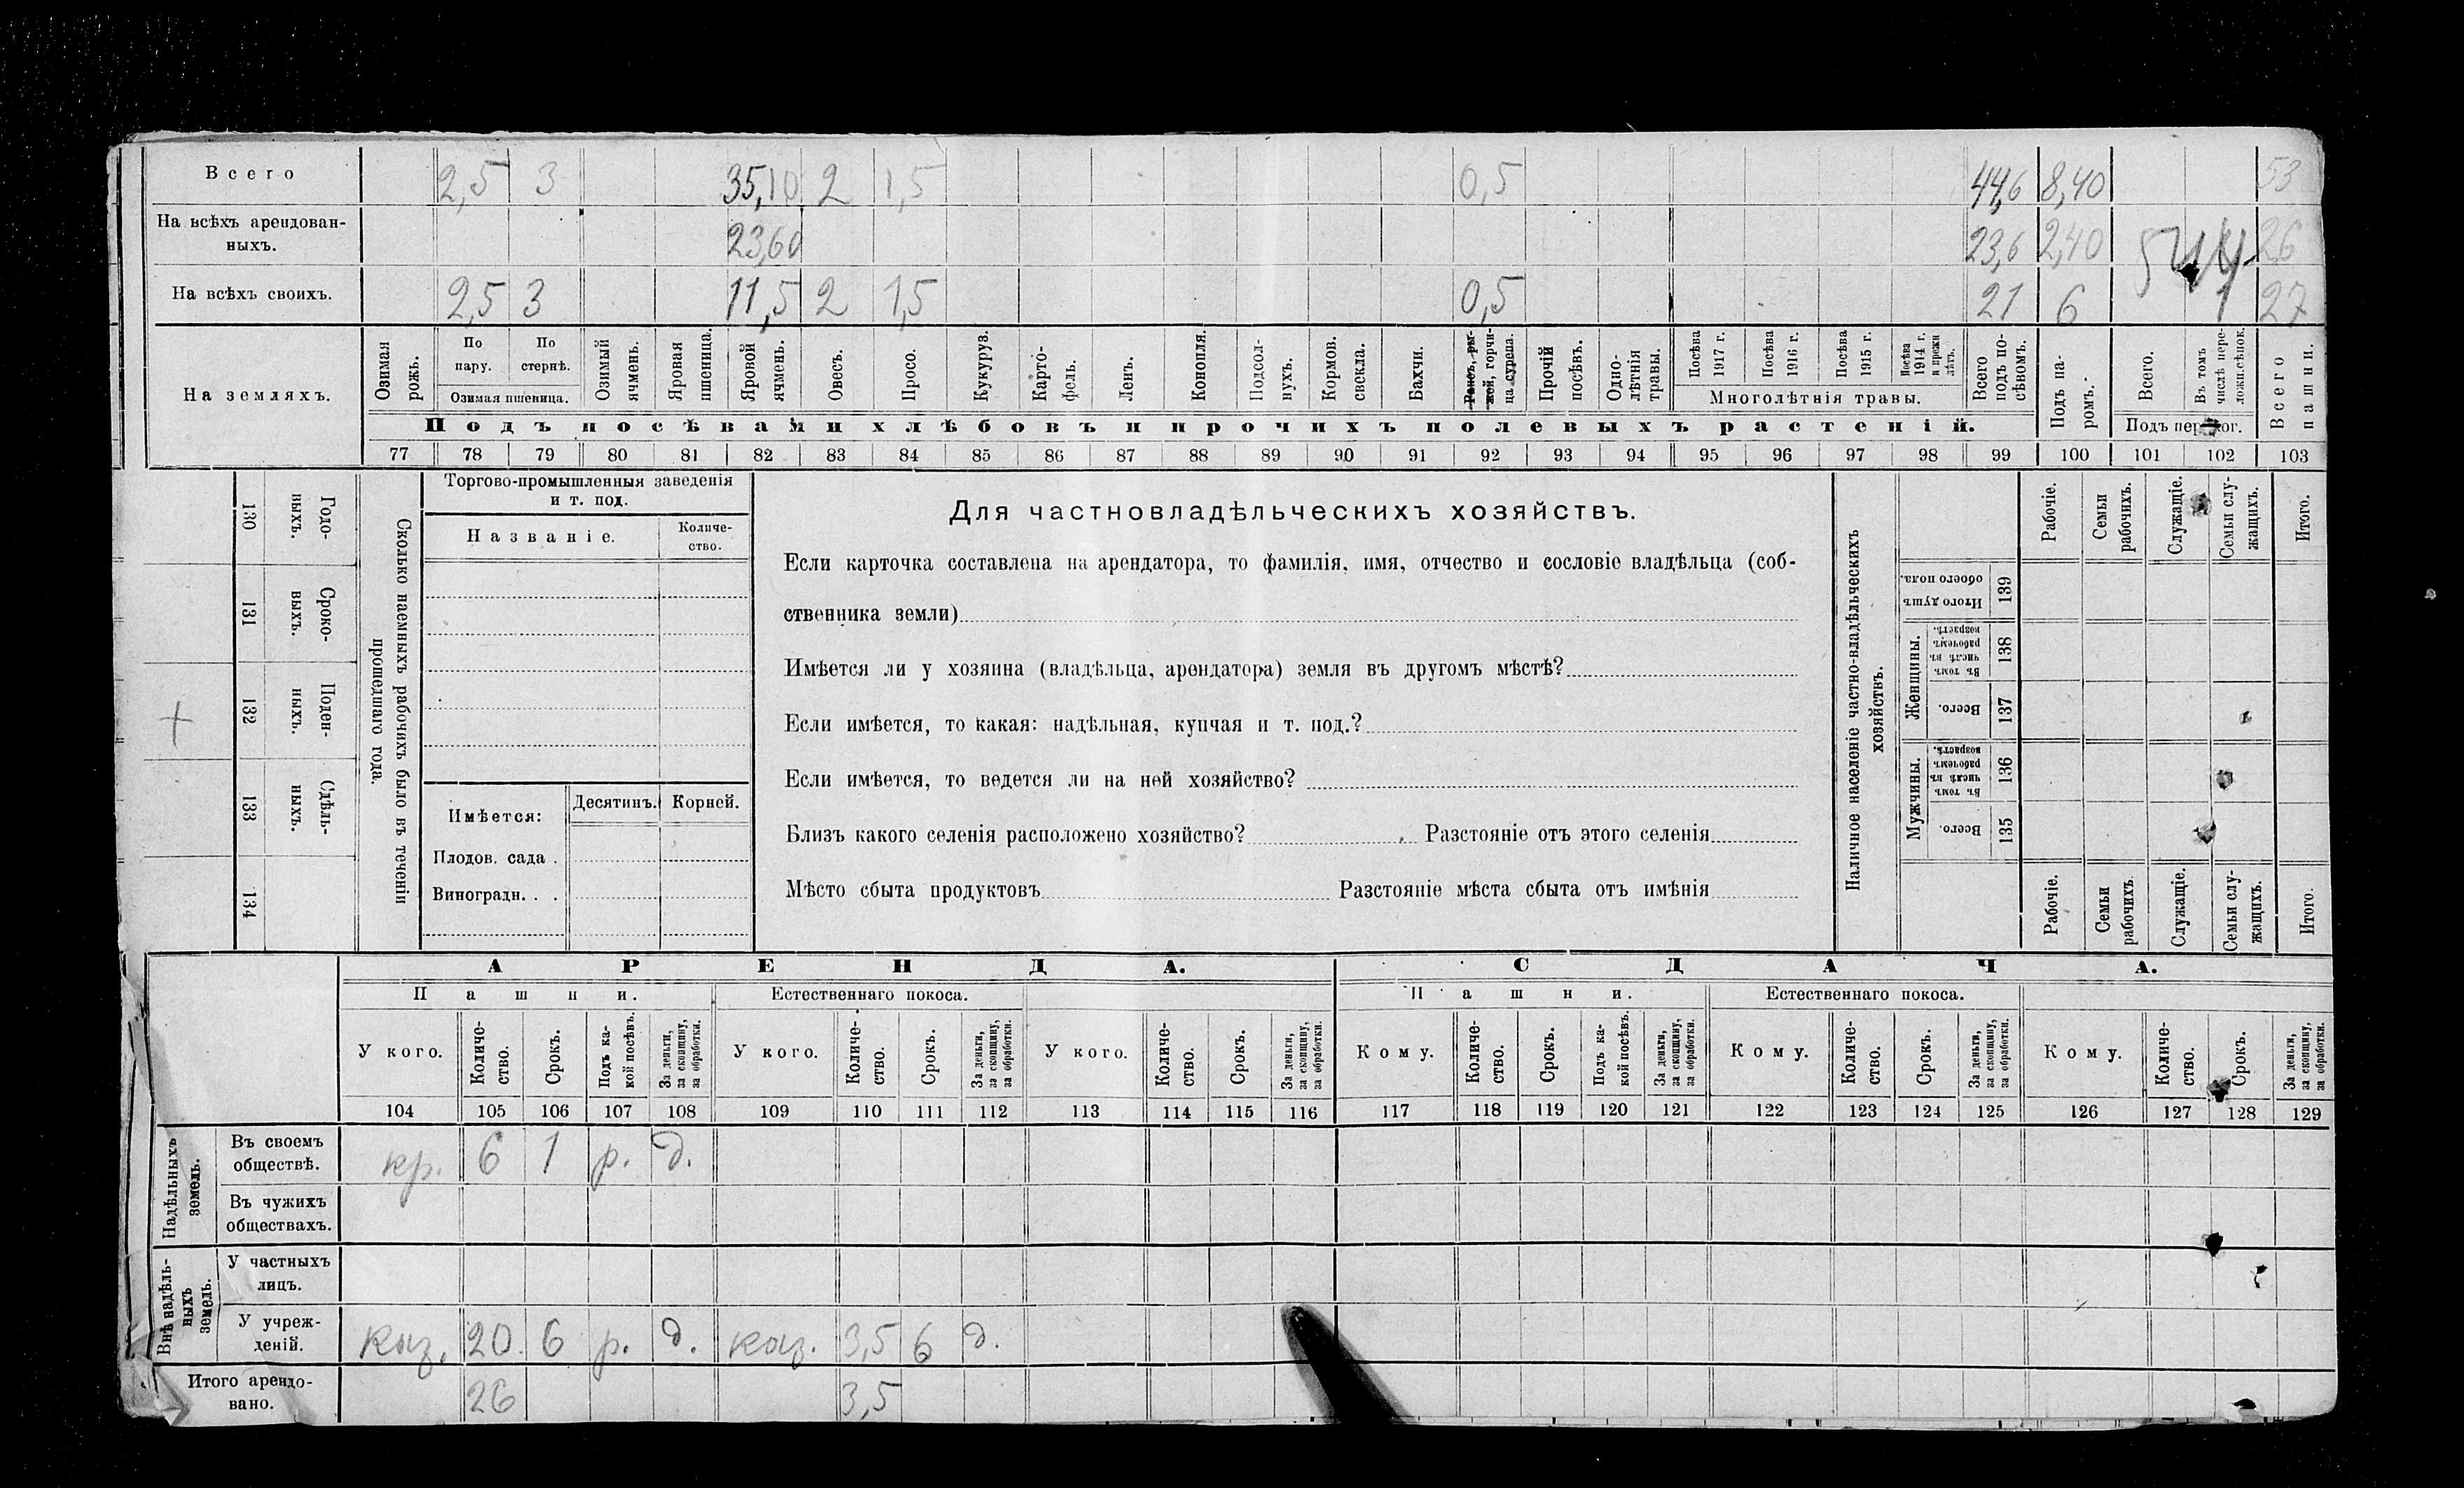 Всего 2,5 3 35,10 2 1,5 0,5 44,6 8,40 53
На всѣхъ арендован-
ныхъ. 23,60 23,6 2,40 26
544
На всѣхъ своихъ. 2,5 3 11,5 2 1,5 0,5 21 6 1 27
На земляхъ.
Озимая рожь.
По пару.
По стернѣ.
Озимая пшеница.
Озимый ячмень.
Яровая пшеница.
Яровой ячмень.
Овесъ.
Просо.
Кукуруза.
Карто-
фель.
Ленъ.
Конопля.
Подсол-
нухъ.
Кормов.
свекла.
Бахчи.
Рапсъ, ры-
жей, горчи-
ца сурепа.
Прочій
посѣвъ.
Одно-
лѣтнія
травы.
Посѣва 1917 г.
Посѣва 1916 г.
Посѣва 1915 г.
Посѣва 1914 г. и прежн лѣтъ.
Многолѣтнія травы.
Всего
подъ по-
сѣвомъ.
Подъ па-
ромъ.
Всего.
Въ томъ
числѣ пере-
ложн.сѣнок.
Подъ перелог.
Всего
пашни.
Подъ посѣвами хлѣбовъ и прочихъ полевыхъ растеній.
77 78 79 80 81 82 83 84 85 86 87 88 89 90 91 92 93 94 95 96 97 98 99 100 101 102 103
130 Годо-
выхъ.
131 Сроко-
выхъ.
132 Поден-
ныхъ.
133 Сдѣль-
ныхъ.
134
Сколько наемныхъ рабочихъ было въ теченіи
прошедшаго года.
Торгово-промышленныя заведенія
и т. под.
Названіе.
Количе-
ство.
Имѣется:
Десятинъ. Корней.
Плодов. сада .
Виноградн. . .
Для частновладѣльческихъ хозяйствъ.
Если карточка составлена на арендатора, то фамилія, имя, отчество и сословіе владѣльца (соб-
ственника земли)
Имѣется ли у хозяина (владѣльца, арендатора) земля въ другомъ мѣстѣ?
Если имѣется, то какая: надѣльная, купчая и т. под.?
Если имѣется, то ведется ли на ней хозяйство?
Близъ какого селенія расположено хозяйство? Разстояніе отъ этого селенія
Мѣсто сбыта продуктовъ Разстояніе мѣста сбыта отъ имѣнія
Наличное населеніе частно-владѣльческихъ
хозяйствъ.
Рабочіе.
Семьи
рабочихъ.
Служащіе.
Семьи слу-
жащихъ.
Итого.
Итого душъ
обоего пола. 139
Женщины.
Въ томъ
числѣ въ
рабочемъ
возрастѣ. 138
Всего. 137
Мужчины.
Въ томъ
числѣ въ
рабочемъ
возрастѣ. 136
Всего. 135
Рабочіе.
Семьи
рабочихъ
Служащіе.
Семьи слу-
жащихъ.
Итого
АРЕНДА. СДАЧА.
Пашни. Естественнаго покоса. Пашни. Естественнаго покоса.
У кого.
Количе-
ство.
Срокъ.
Подъ ка-
кой посѣвъ.
За деньги,
за скопщину,
за обработки.
У кого.
Количе-
ство.
Срокъ.
За деньги,
за скопщину,
за обработки.
У кого.
Количе-
ство.
Срокъ.
За деньги,
за скопщину,
за обработки.
Кому.
Количе-
ство.
Срокъ.
Подъ ка-
кой посѣвъ.
За деньги,
за скопщину,
за обработки.
Кому.
Количе-
ство.
Срокъ.
За деньги,
за скопщину,
за обработки.
Кому.
Количе-
ство.
Срокъ.
За деньги,
за скопщину,
за обработки.
104 105 106 107 108 109 110 111 112 113 114 115 116 117 118 119 120 121 122 123 124 125 126 127 128 129
Надѣльныхъ
земель.
Въ своемъ
обществѣ. кр. 6 1 р. д.
Въ чужихъ
обществахъ.
Внѣ надѣль-
ныхъ
земель.
У частныхъ
лицъ.
У учреж-
деній. каз. 20. 6 р. д. каз. 3,5 6 д.
Итого арендо-
вано. 26 3,5